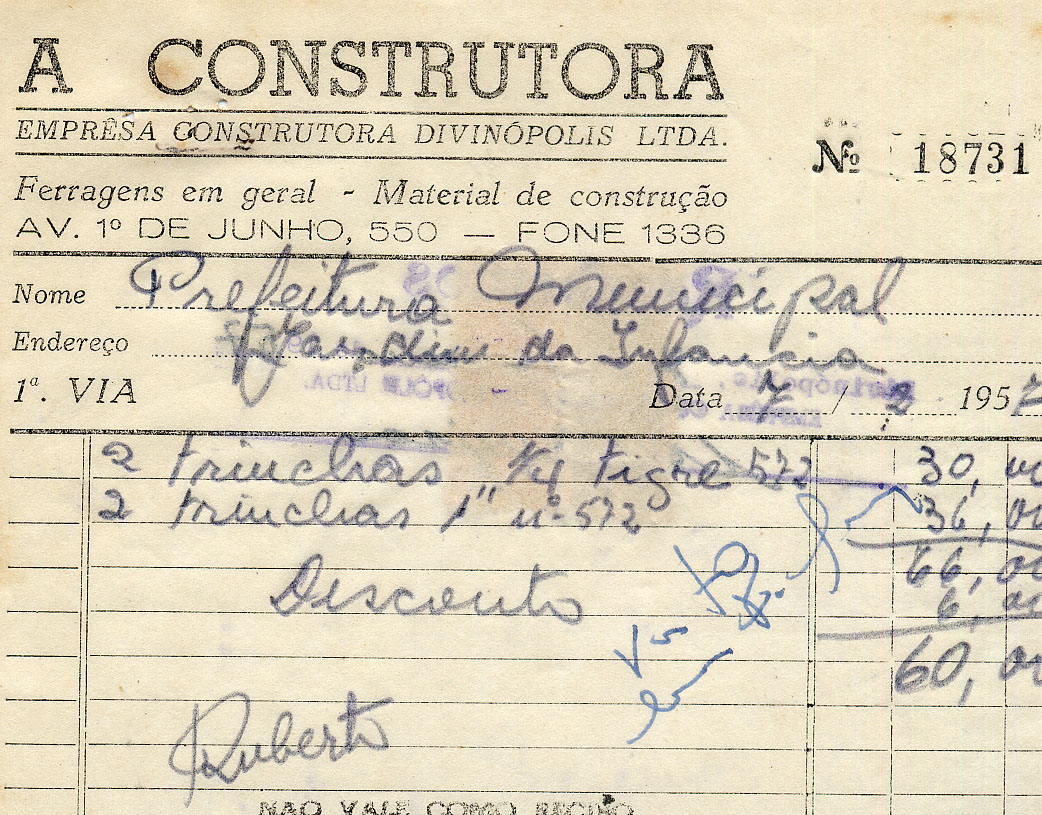 A CONSTRUTORA
EMPRÊSA CONSTRUTORA DIVINÓPOLIS LTDA.
Nº 18731
Ferragens em geral - Material de construção
AV. 1º DE JUNHO, 550 — FONE 1336
Nome Prefeitura Municipal
Endereço Jardim da Infancia
1ª. VIA Data 7 / 2 1957
2 trinchas tigre 572 30, oo
2 trinchas 1" nº 572 36, oo
66, oo
Desconto 6, oo
60, oo
Ruberto
NÃO VALE COMO RECIBO